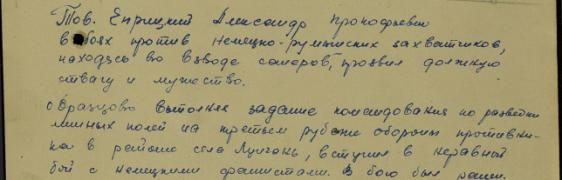 Тов. Енрицкий Александр Прокофьевич
в боях против немецко-румынских захватчиков,
находясь во взводе саперов, проявил должную
отвагу и мужество.
Образцово выполняя задание командования по разведки
минных полей на третьем рубеже обороны противни-
ка в районе села Лунгань, вступил в неравный
бой с немецкими фашистами. В бою был ранен.